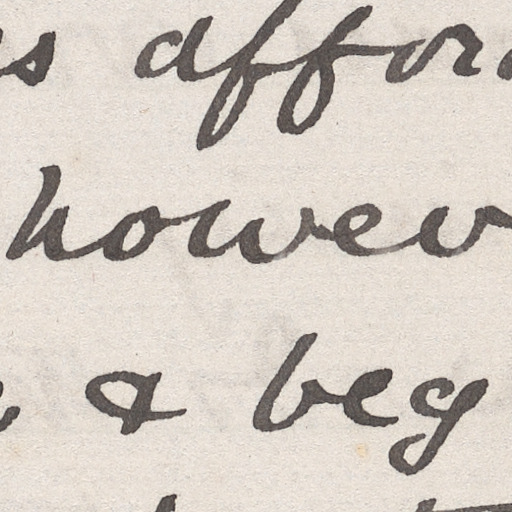 s affor
howev
& beg